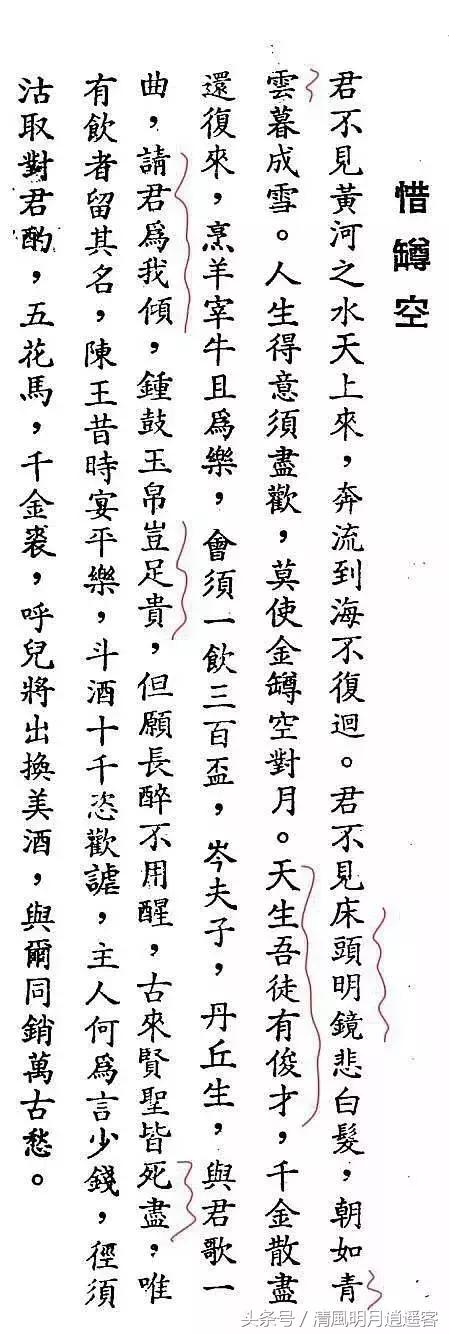 惜罇空
君不見黃河之水天上來，奔流到海不復迴。君不見床頭明鏡悲白髮，朝如青
雲暮成雪。人生得意須盡歡，莫使金罇空對月。天生吾徒有俊才，千金散盡
還復來，烹羊宰牛且爲樂，會須一飲三百盃，岑夫子，丹丘生，與君歌一
曲，請君爲我傾，鍾鼓玉帛豈足貴，但願長醉不用醒，古來賢聖皆死盡，唯
有飲者留其名，陳王昔時宴平樂，斗酒十千恣歡謔，主人何爲言少錢，徑須
沽取對君酌，五花馬，千金裘，呼兒將出換美酒，與爾同銷萬古愁。
头条号／清風明月逍遥客